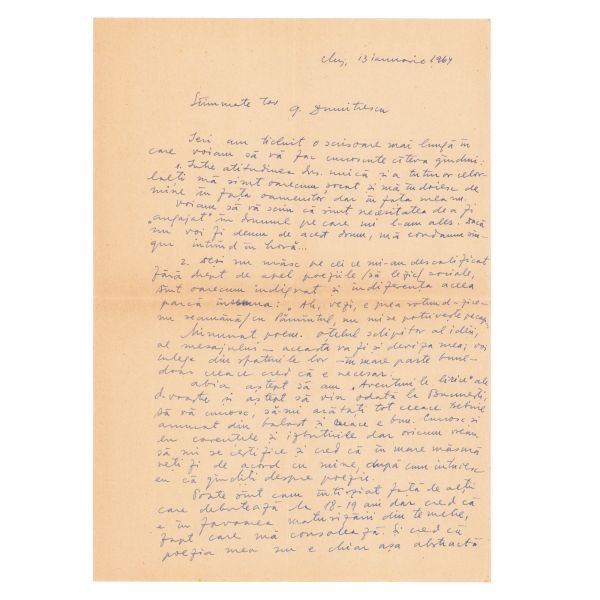 Cluj, 13 ianuarie 1964
Stimate tov G. Dumitrescu
Ieri am ticluit o scrisoare mai lungă în
care voiam să vă fac cunoscute câteva gânduri:
1. Între atitudinea dvs. mică și a tuturor celor-
lalți mă simt oarecum șocat și mă îndoiesc de
mine în fața oamenilor dar în fața mea nu.
Voiam să vă scriu că simt necesitatea de a fi
„angajat" în domeniul pe care mi l-am ales. Dacă
nu voi fi demn de acest domn, mă condamn sin-
gur intrînd în horă...
2. Deși nu mîsc pe cei ce mi-au descalificat
fără drept de apel poeziile (să le zic) sociale,
sînt oarecum indignat și indiferența aceea
parcă însemna: „Ah, vezi, e prea rotund - zice -
nu seamănă cu Pămîntul, nu mi se potrivește
Minunat poem. oțelul sclipitor al ideii,
al mesajului - aceasta va fi și deviza mea; voi
culege din sfaturile lor - în mare parte
ceeace cred că e necesar.
abia aștept să am „Aventuri lirice" ale
d-voastre și aștept să vin odată la București,
să vă cunosc, să-mi arătați tot ceeace trebuie
aruncat din balast și ceeace e bun. Cunosc și
eu cuvintele și izbutirile dar oricum vreau
să mi se certifice și cred că în mare măsură
veți fi de acord cu mine, după cum intuiesc
eu că gîndiți despre poezie.
Poate sînt cam întîrziat față de alții
care debutează la 18-19 ani dar cred că
e în favoarea maturizării din temelie,
fapt care mă consolează. Și cred că
poezia mea nu e chiar așa abstractă